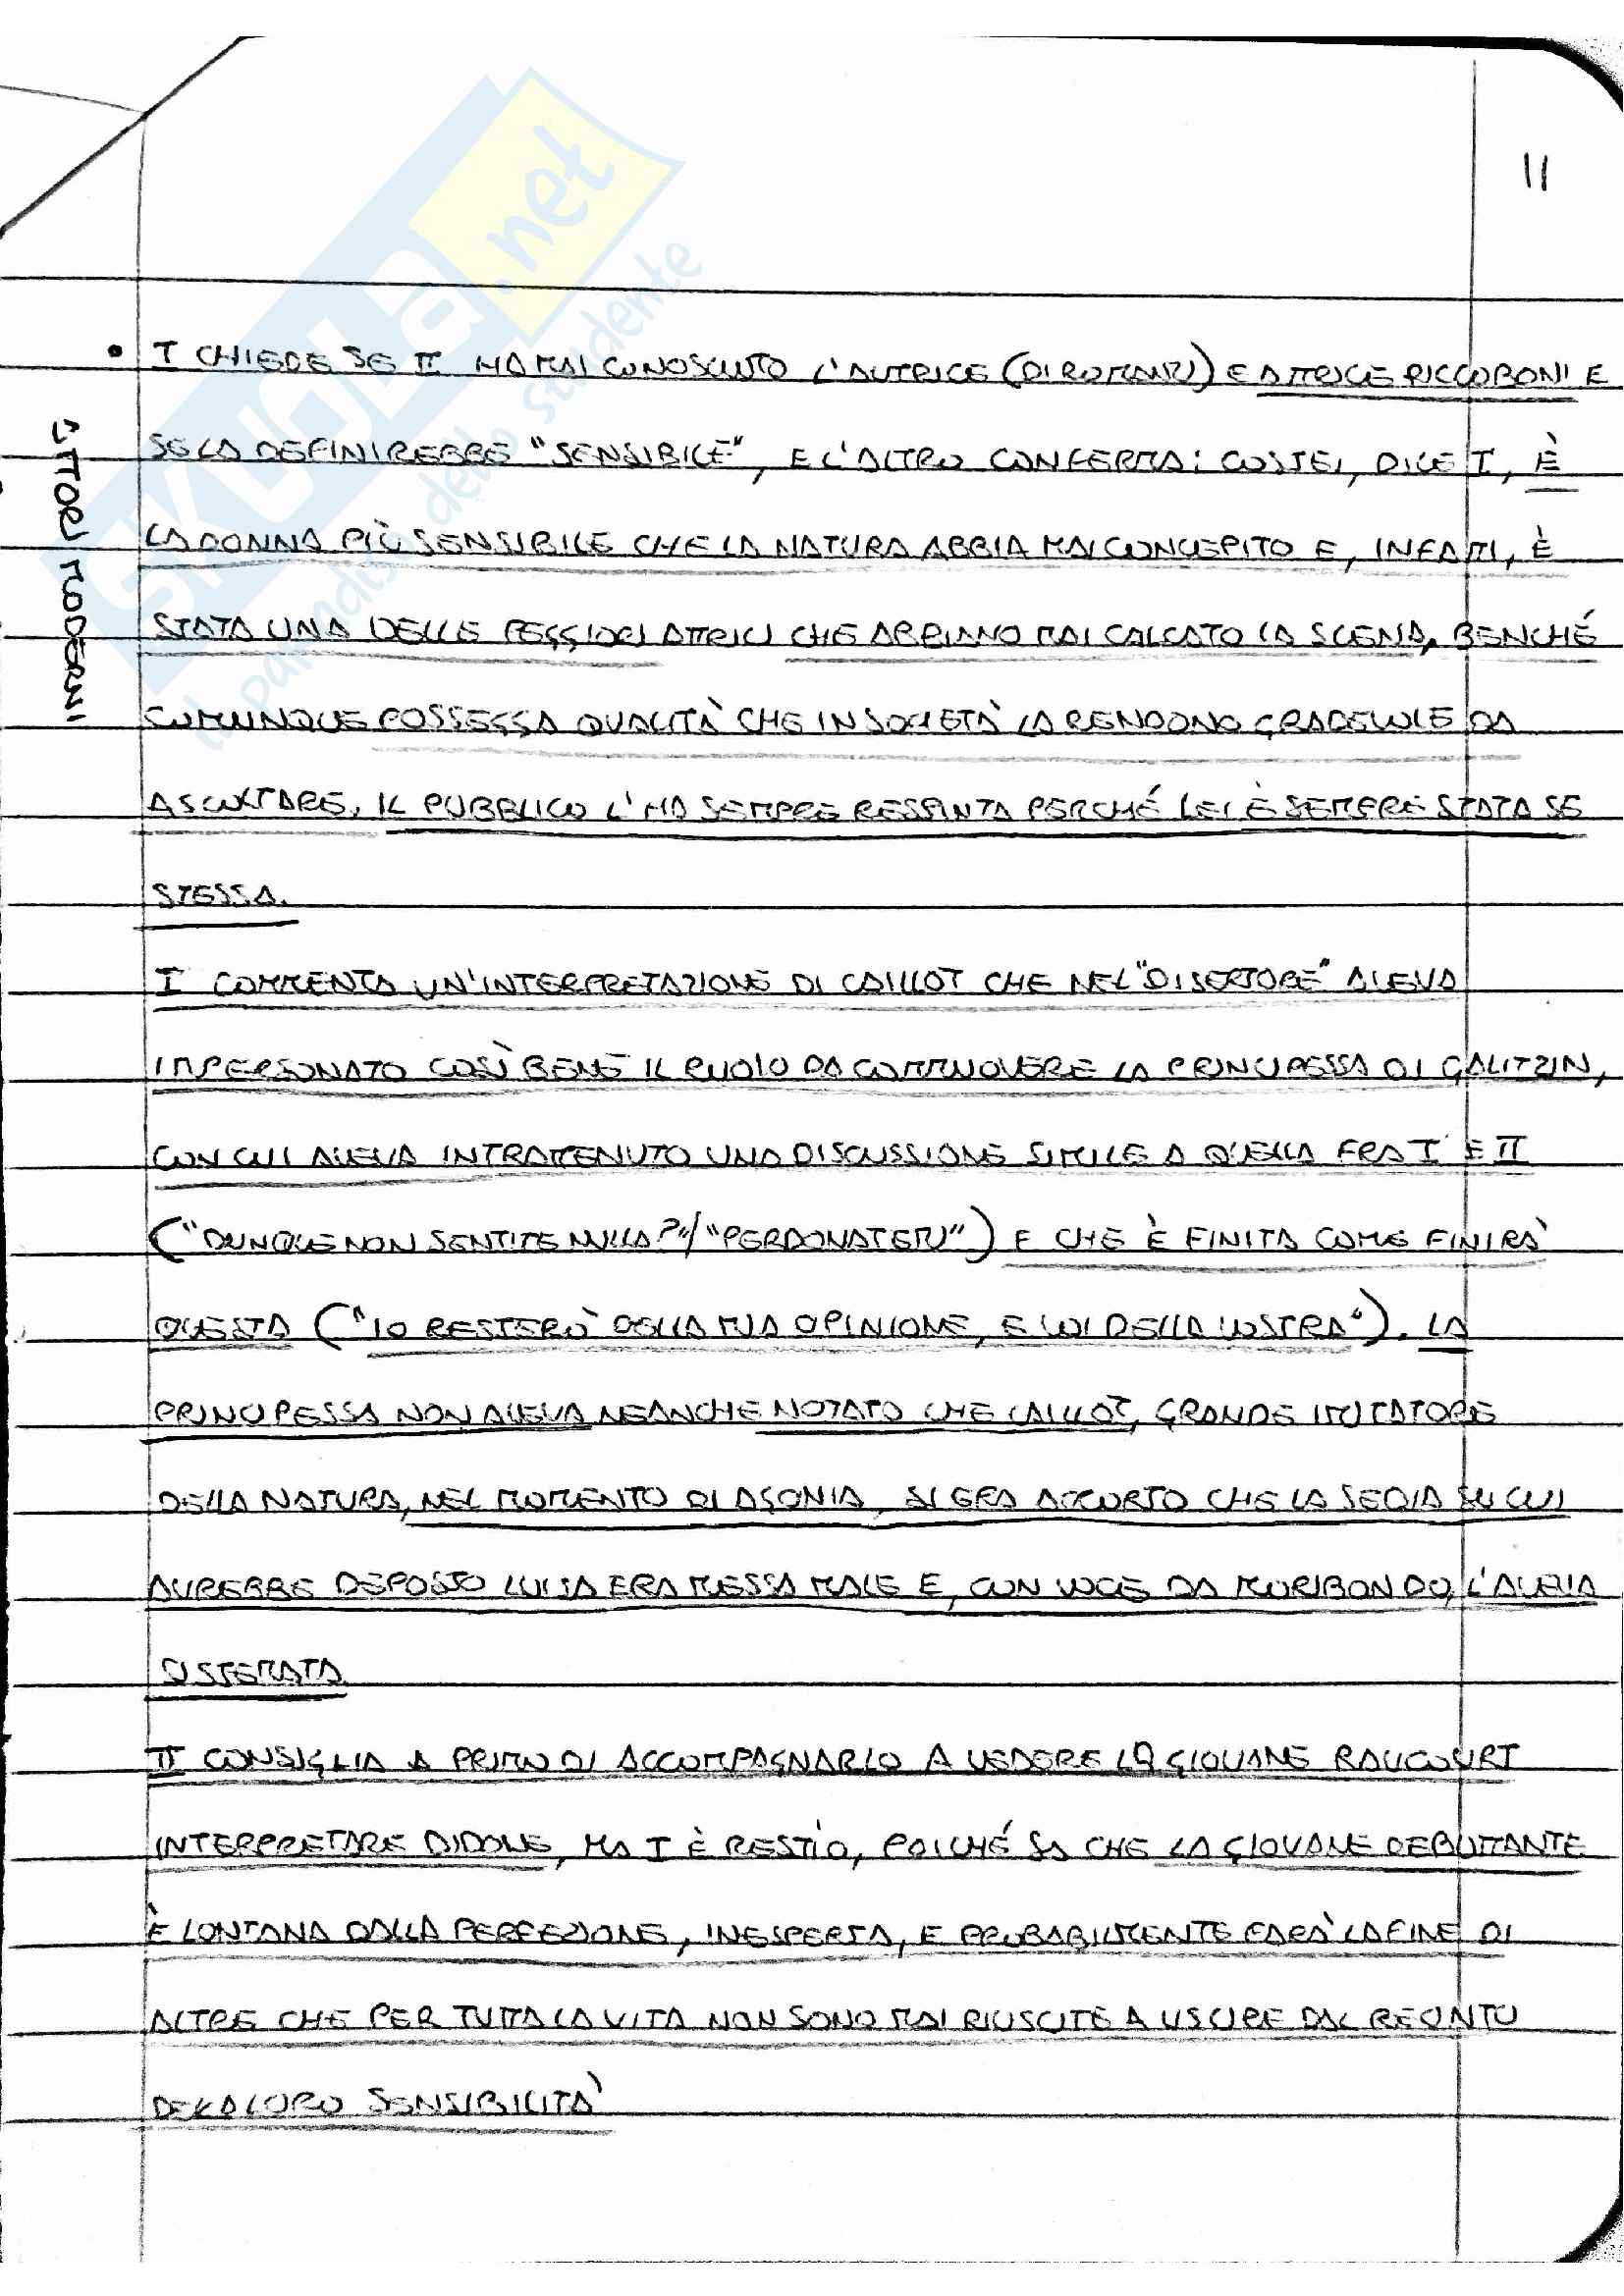 11
• I CHIEDE SE II HA MAI CONOSCIUTO L'AUTRICE (DI ROMANZI) E ATTRICE RICCOBONI E
SE LA DEFINIREBBE "SENSIBILE", E L'ALTRO CONFERMA: COSTEI, DICE I, È
LA DONNA PIÙ SENSIBILE CHE LA NATURA ABBIA MAI CONCEPITO E, INFATTI, È
STATA UNA DELLE PEGGIORI ATTRICI CHE ABBIANO MAI CALCATO LA SCENA, BENCHÉ
COMUNQUE POSSEGGA QUALITÀ CHE IN SOCIETÀ LA RENDONO GRADEVOLE DA
ASCOLTARE, IL PUBBLICO L'HA SEMPRE RESPINTA PERCHÉ LEI È SEMPRE STATA SE
STESSA.
I COMMENTA UN'INTERPRETAZIONE DI CAILLOT CHE NEL "DISERTORE" AVEVA
IMPERSONATO COSÌ BENE IL RUOLO DA COMMUOVERE LA PRINCIPESSA DI GALITZIN,
CON CUI AVEVA INTRATTENUTO UNA DISCUSSIONE SIMILE A QUELLA FRA I E II
("DUNQUE NON SENTITE NULLA?"/"PERDONATEMI") E CHE È FINITA COME FINIRÀ
QUESTA ("IO RESTERÒ DELLA MIA OPINIONE, E VOI DELLA VOSTRA"). LA
PRINCIPESSA NON AVEVA NEANCHE NOTATO CHE CAILLOT, GRANDE IMITATORE
DELLA NATURA, NEL MOMENTO DI AGONIA, SI ERA ACCORTO CHE LA SEDIA SU CUI
AVREBBE DEPOSTO LUISA ERA MESSA MALE E, CON VOCE DA MORIBONDO, L'AVEVA
SISTEMATA
II CONSIGLIA A PRIMO DI ACCOMPAGNARLO A VEDERE LA GIOVANE RAUCOURT
INTERPRETARE DIDONE, MA I È RESTIO, POICHÉ SA CHE LA GIOVANE DEBUTTANTE
È LONTANA DALLA PERFEZIONE, INESPERTA, E PROBABILMENTE FARÀ LA FINE DI
ALTRE CHE PER TUTTA LA VITA NON SONO MAI RIUSCITE A USCIRE DAL RECINTO
DELLA LORO SENSIBILITÀ
ATTORI MODERNI
SKUOLA.net
il paradiso dello studente